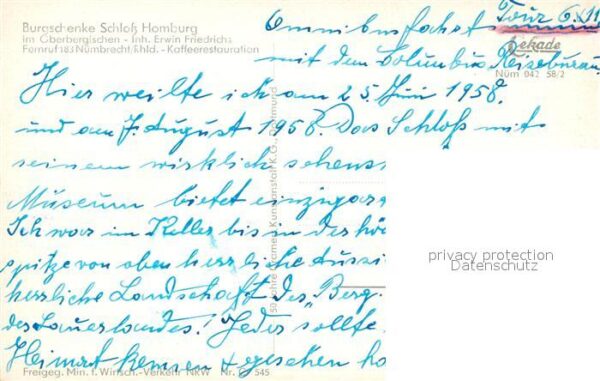 Burgschenke Schloß Homburg
im Oberbergischen - Inh. Erwin Friedrichs
Fernruf 183 Nümbrecht/Rhld. - Kaffeerestauration
Omnibusfahrt Tour 6.
mit dem Columbus Reisebüro
Dekade
Nüm 042 58/2
Hier weilte ich am 25. Juni 1958
und am 7. August 1958. Das Schloß mit
seinem wirklich sehens
Museum bietet einzigar
Ich war im Keller bis in der hö
spitze von oben herrliche Aussi
herrliche Landschaft des "Berg.
des Sauerlandes! Jeder sollte
Heimat kennen + gesehen ha
Freigeg. Min. f. Wirtsch.-Verkehr NRW Nr. 545
50 Jahre Cramers Kunstanstalt K.G., Dortmund
privacy protection
Datenschutz